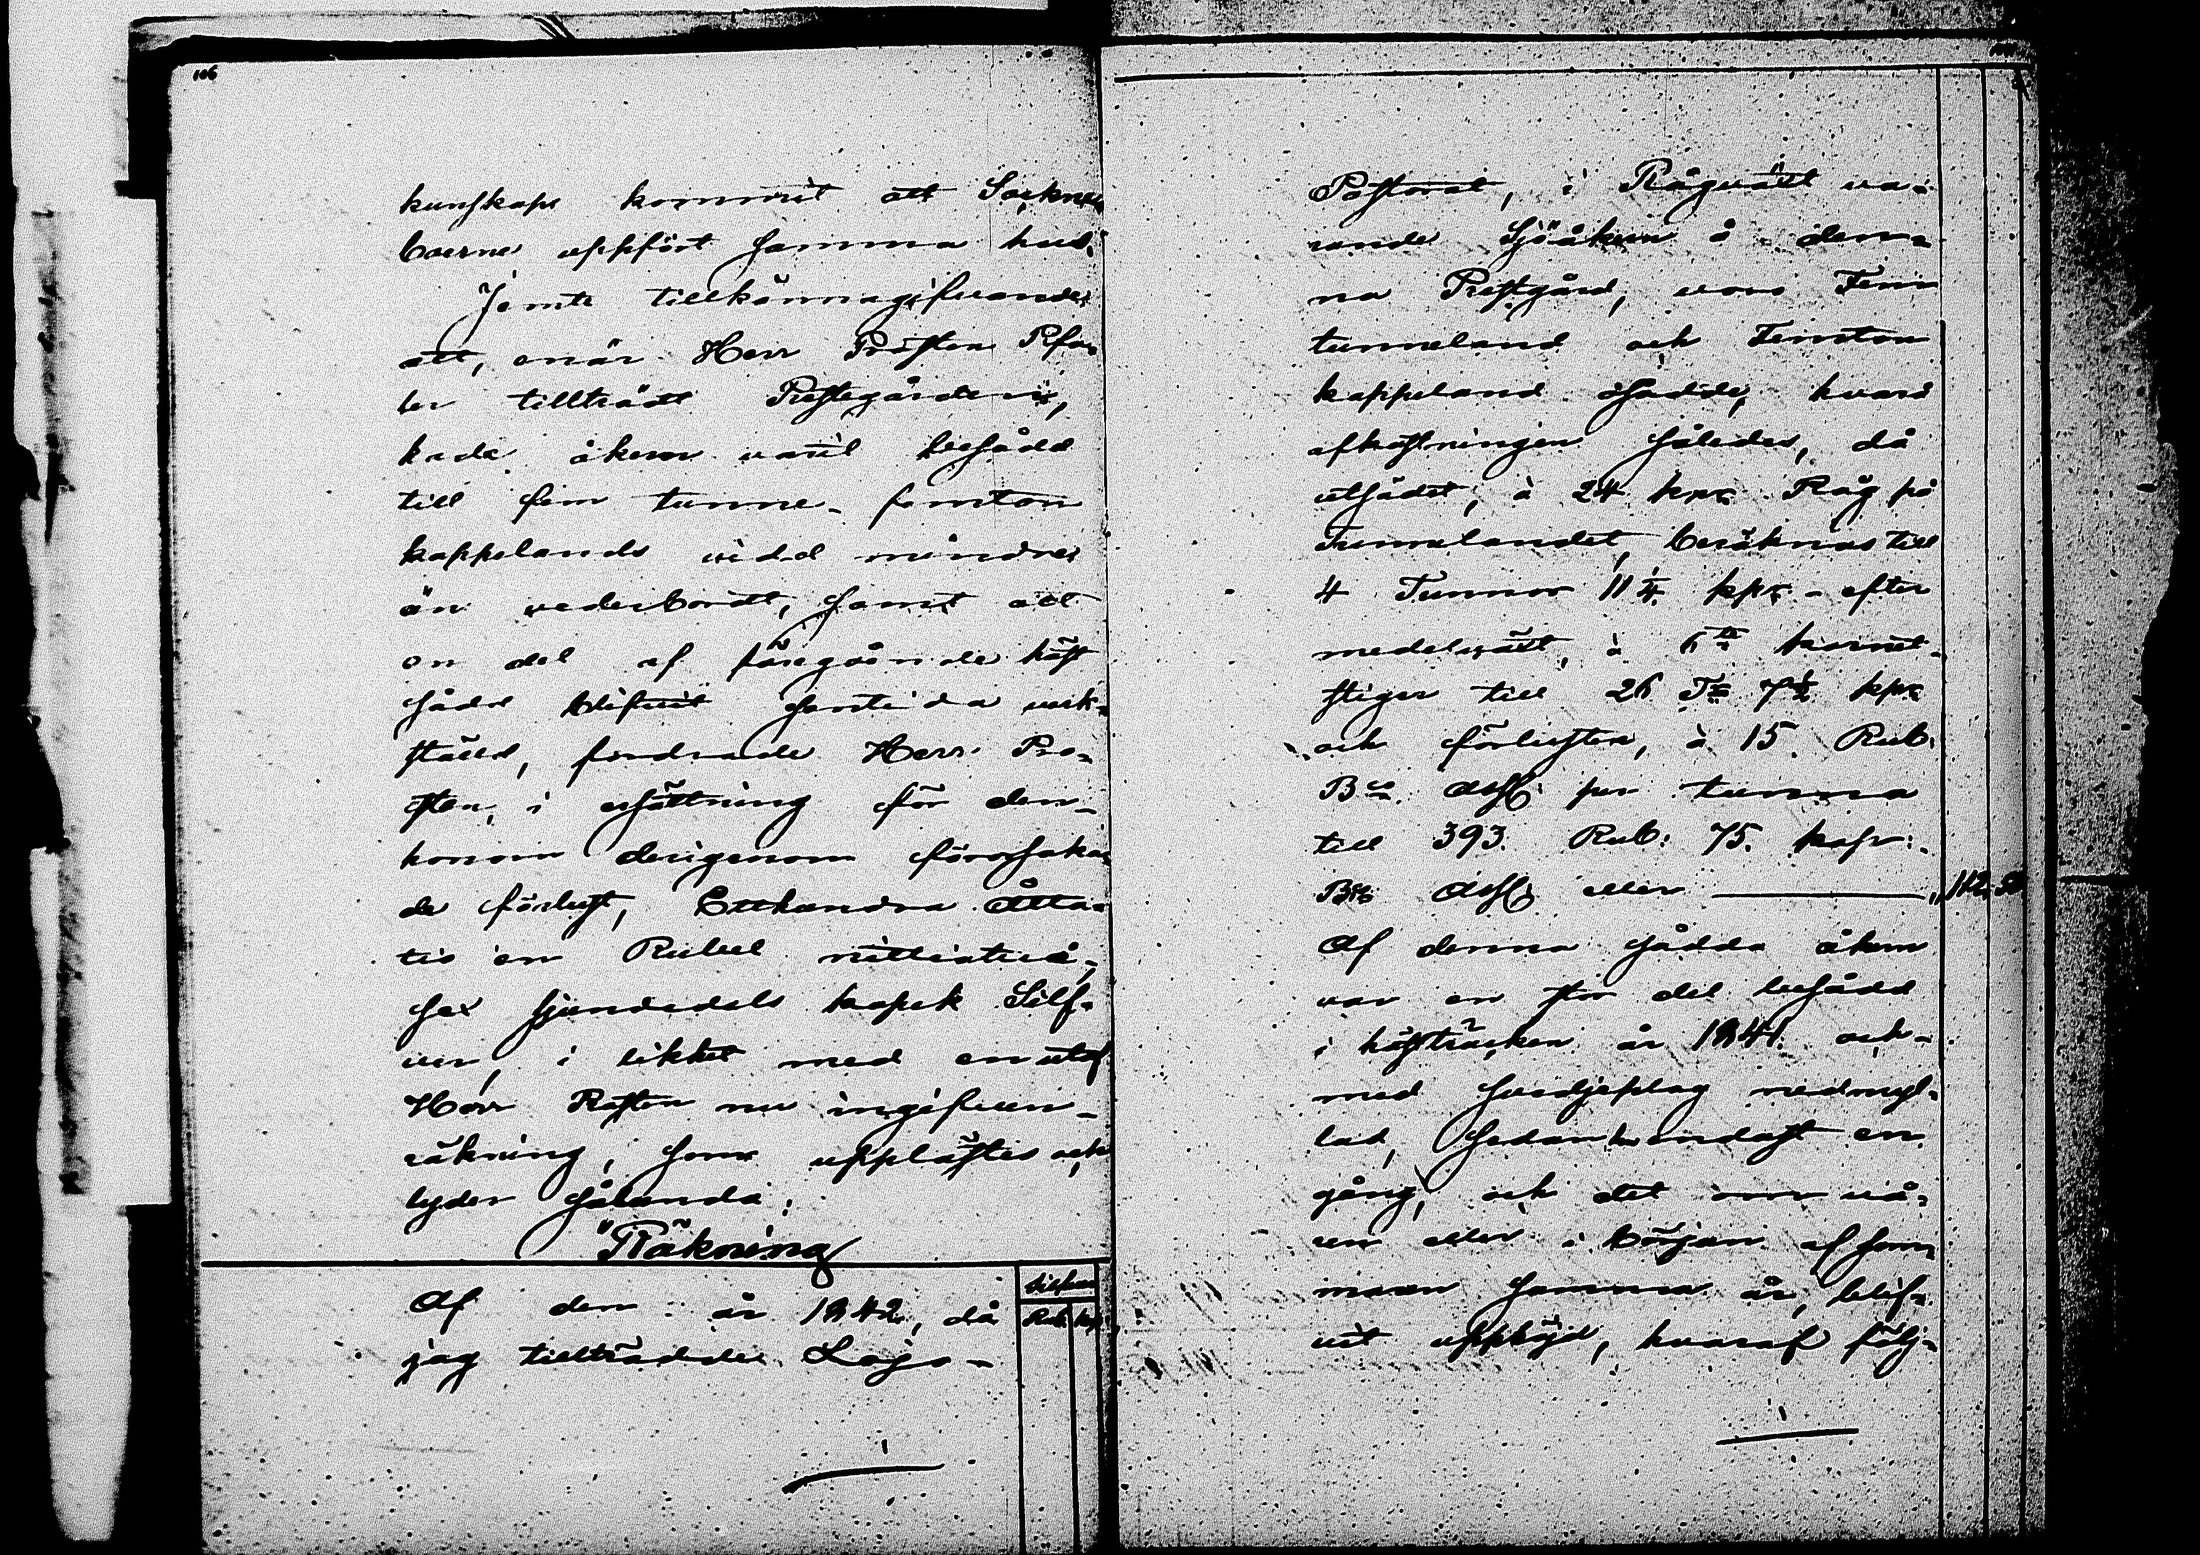 106
kunskap kommit att Sockne
boerne uppfört samma hus.
Jemte tillkännagifvande,
att, enär Herr Prosten Pfa-
ler tillträdt Prestegården,
hade åkern varit besådd
till fem tunne- femton
kappelands vidd mindre
än vederbordt, samt att
en del af föregående höst
sådd blifvit sentida verk-
ställd, fordrade Herr Pro-
sten, i ersättning för den
honom derigenom förorsaka-
de förlust, Etthundra Åtta-
tio en Rubel nittiotvå
sex sjundedels kopek Silf-
ver, i likhet med en utaf
Herr Prosten nu ingifven
räkning, som upplästes och
lyder sålunda:
"Räkning
Af den år 1842, då
jag tillträdde Lojo-
Silfver
Rub. Kop.
Pastorat, i Rågvält va-
rande Sjöåkern å den-
na Prestgård, voro Fem
tunneland och Femton
kappeland osådde, hvars
afkastningen således, då
utsädet, à 24 kpr Råg på
Tunnelandet, beräknas till
4 Tunnor 11 1/4 kpr - efter
medelväxt, à 6te kornet
stiger till 26 Tr 7 1/2 kpr
och förlusten, à 15 Rub.
Bco Ass. per tunna
till 393. Rub: 75. kop:
Bco Ass. eller " 112. 50
Af denna sådda åkern
var en stor del besådd
i höstträcken år 1841 och
med svedjeplog nedmyl-
lad, sedan den endast en
gång, och det om vå-
ren eller i början af som-
maren samma år, blif-
vit uppköjd, hvaraf följ-